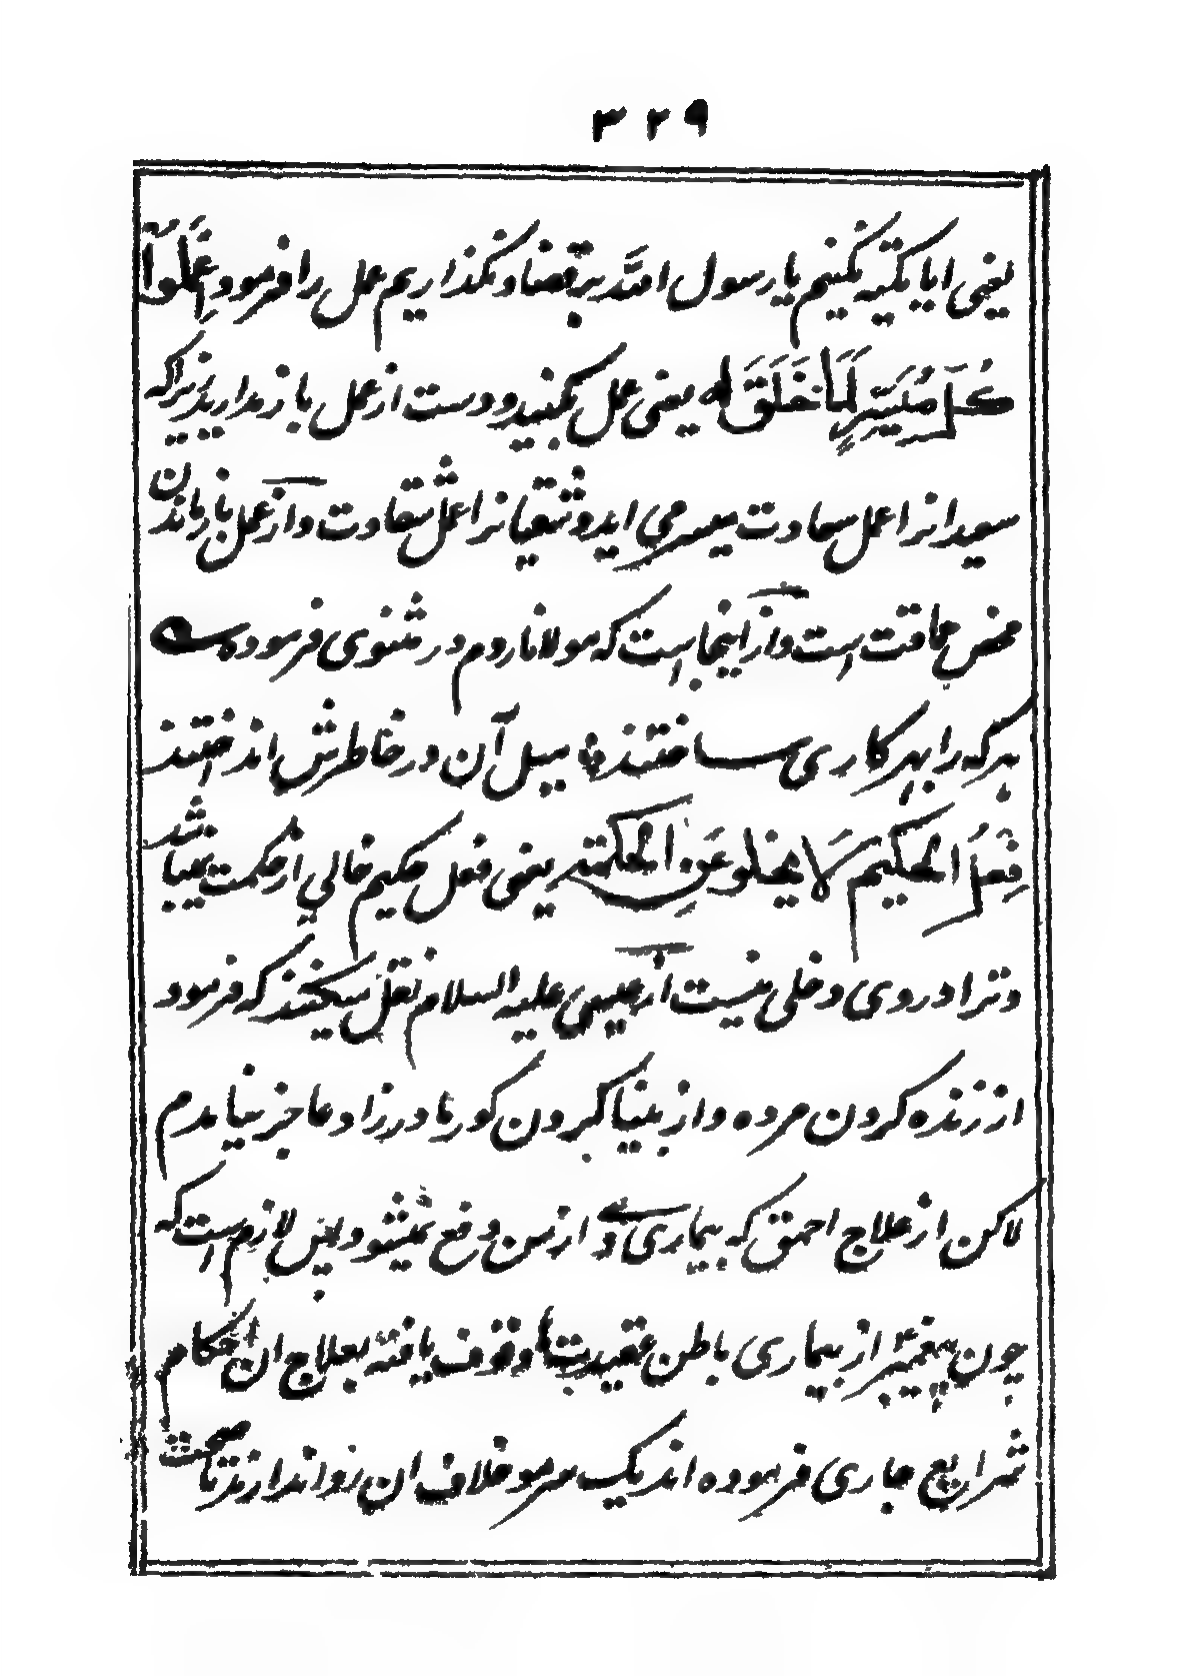 ۳۲۹
یعنی ایا تکیه نکنیم یا رسول اللّٰه بر قضا و نگذاریم عمل را فرمود و اِعْمَلُوْا
کُلٌّ مُیَسَّرٌ لِّمَا خَلَقَ لَه یعنی عمل بکنید و دست از عمل باز ندارید زیراکه
سعیدانرا عمل سعادت میسر می اید و شقیانرا عمل شقاوت و از عمل بازماندن
محض حماقت است و از اینجاست که مولانا روم در مثنوی فرموده
هر که را بهر کاری ساختند میل آن در خاطرش انداختند
فِعْلُ الحکیم لا یخلو عَنِ الحکمته یعنی فعل حکیم خالی از حکمت نمیباشد
و ترا در وی دخلی نیست از عیسی علیه السلام نقل میکنند که فرمود
از زنده کردن مرده و از بینا کردن کور مادرزاد عاجز نیامدم
لاکن از علاج احمق که بیماری وی از من دفع نمیشود پس لازم است که
چون پیغمبر از بیماری باطن عقیدت ما وقوف یافته بعلاج ان احکام
شرایع جاری فرموده اند یک سر مو خلاف ان روا ندارند تا صحت